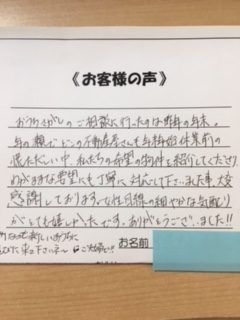 《お客様の声》
おうちさがしのご相談に行ったのは昨年の年末。
年の瀬でどこの不動産屋さんも年末始休業前の
慌ただしい中、私たちの希望の物件を紹介してくださり、
わがままな要望にも丁寧に対応して下さいました事、大変
感謝しております。女性目線の細やかな気配り
がとても嬉しかったです。ありがとうございました!!
新しいおうちに
来て下さいネ〜
お名前